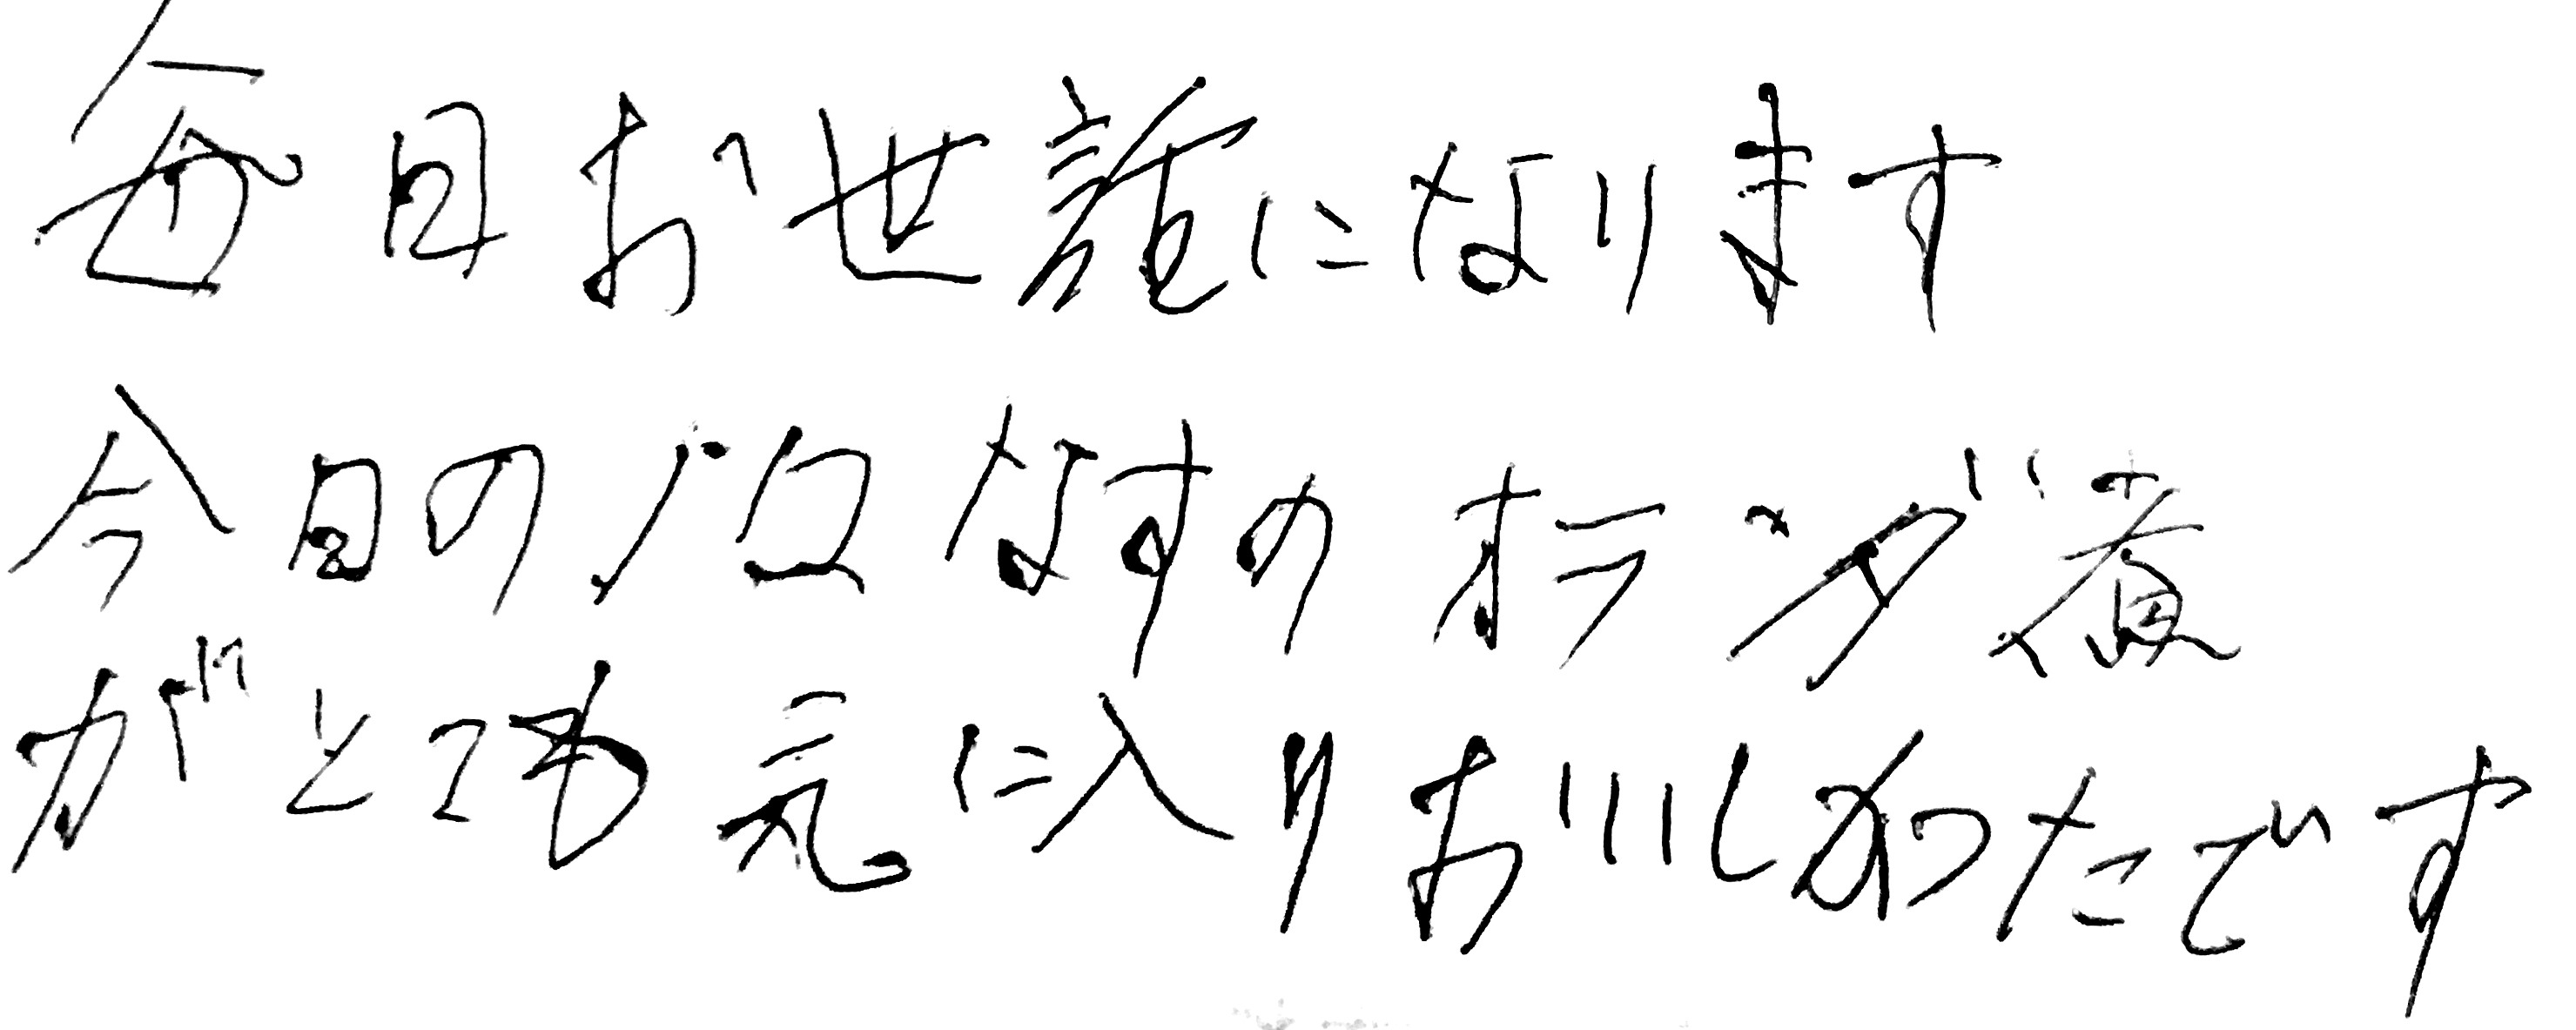 毎日お世話になります
今日の小口なすのオランダ煮
がとても元に入りおいしかったです